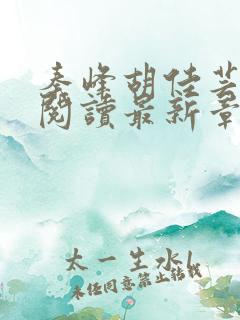 秦峰胡佳芸
閱讀最新章
太一生水1
未经同意禁止转载